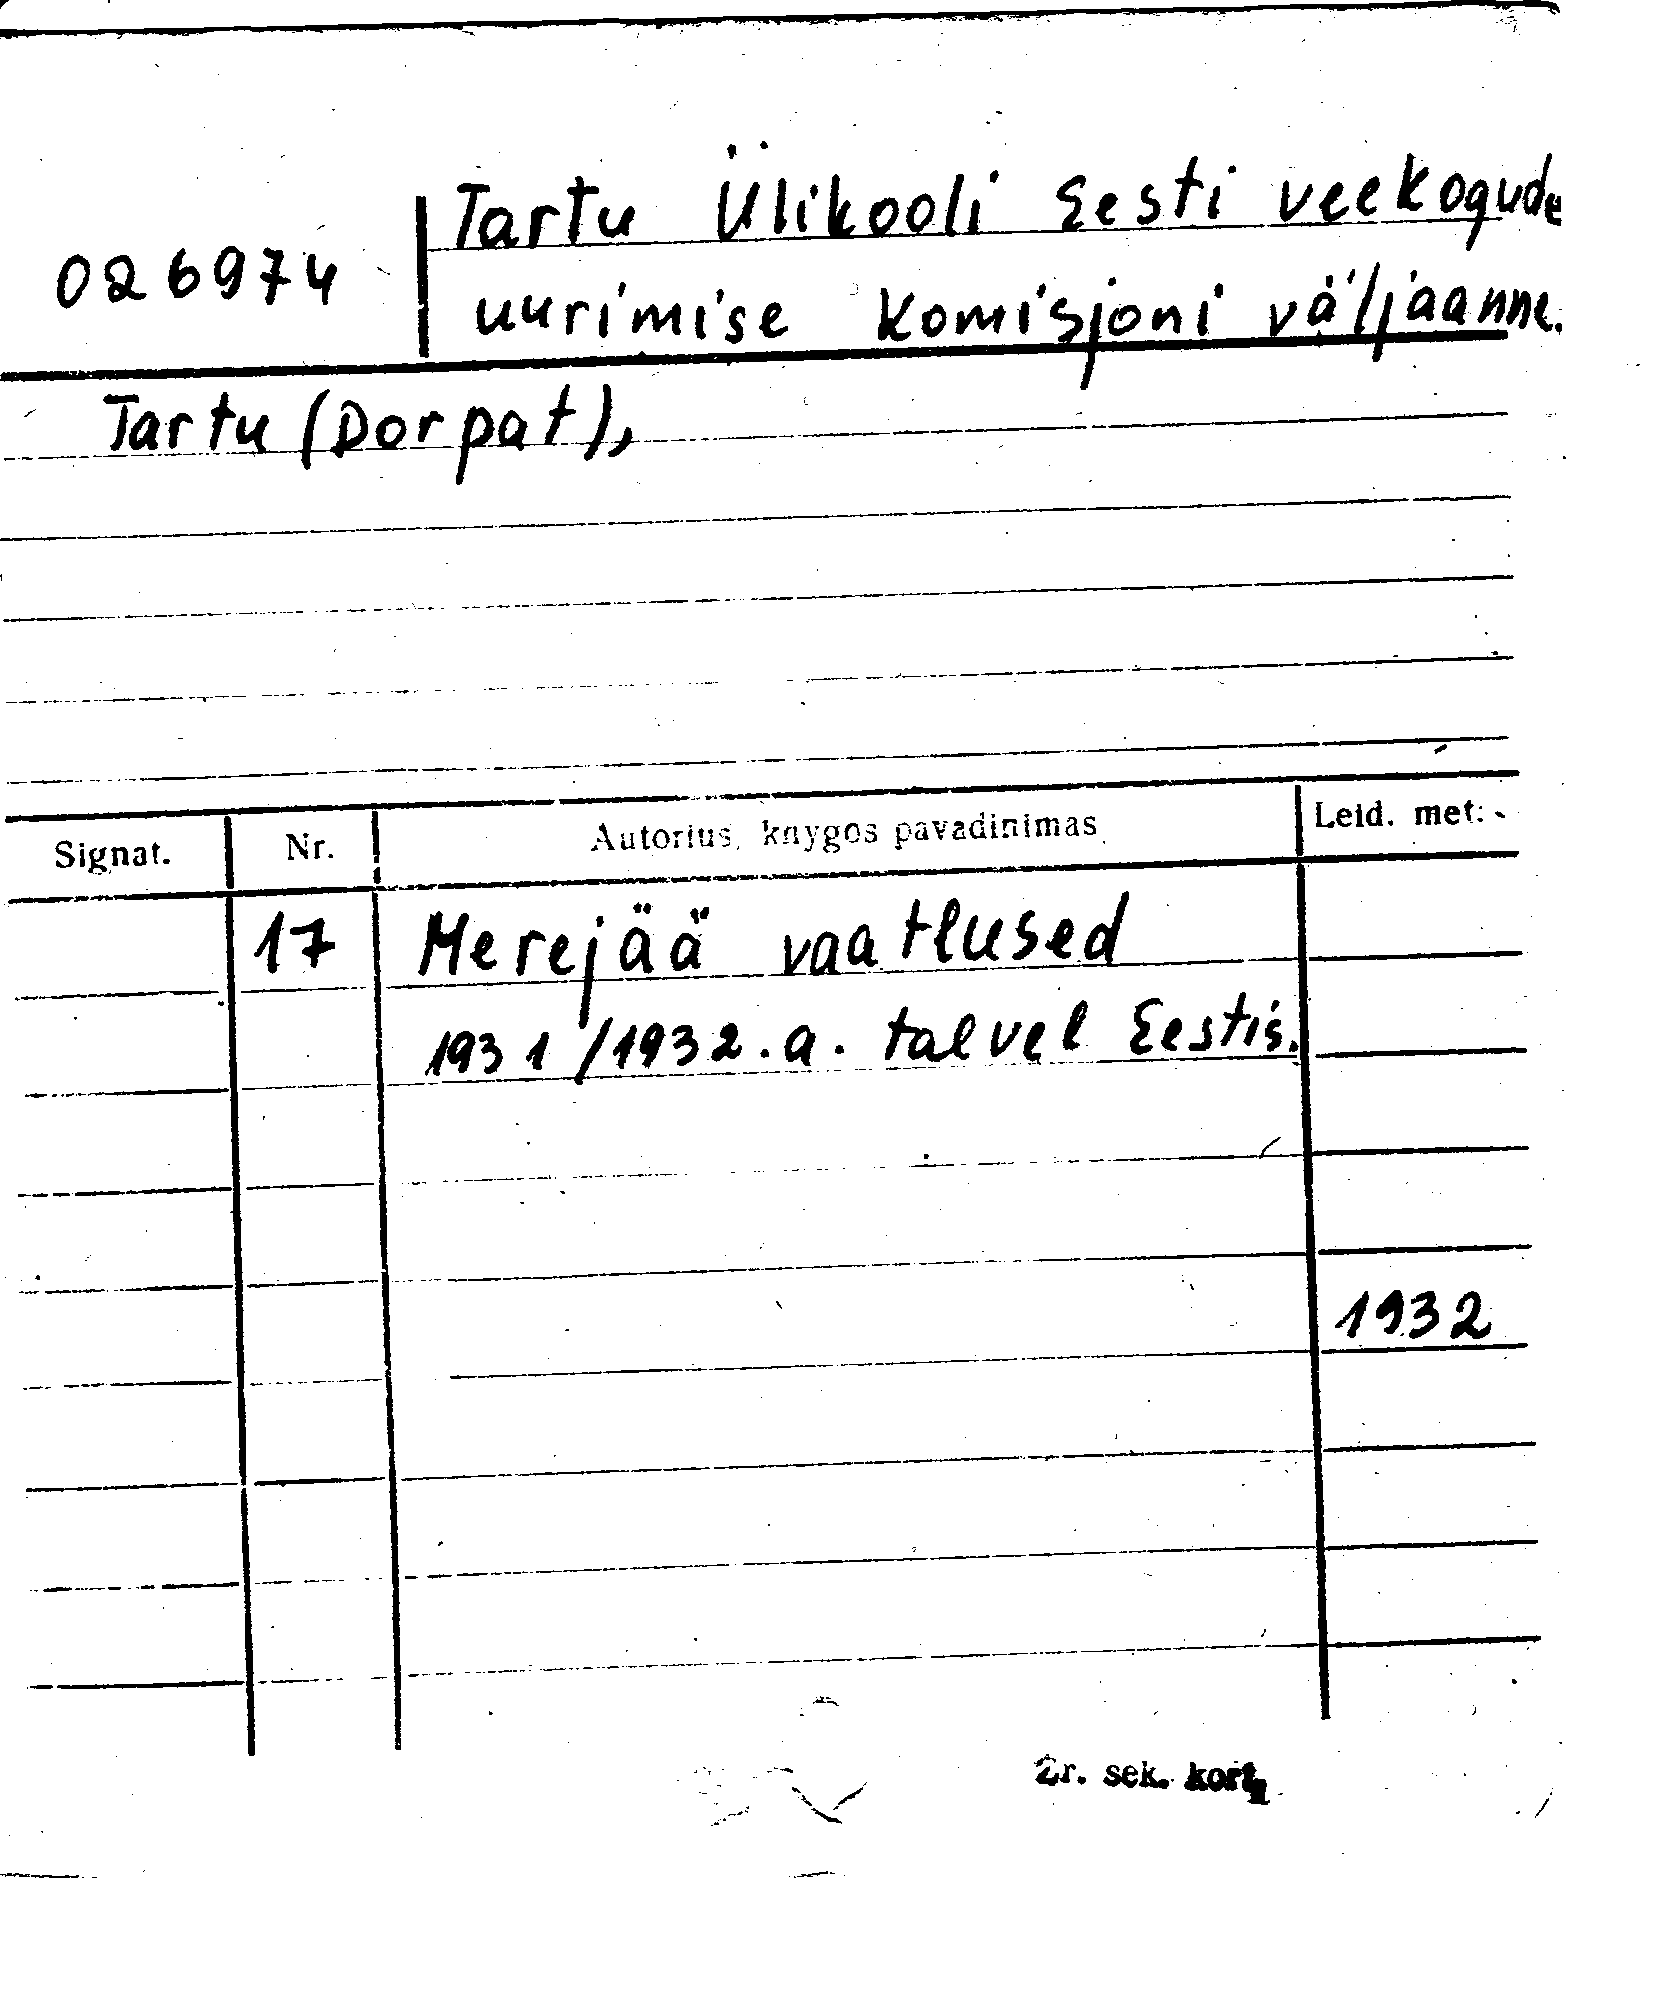 Tartu Ülikooli Eesti veekogude
026974
uurimise komisjoni väljaanne.
Tartu (Dorpat),
Signat. Nr. Autorius, knygos pavadinimas Leid. met:
17 Merejää vaatlused
1931/1932.a. talvel Eestis.
1932
Žr. sek. kort.